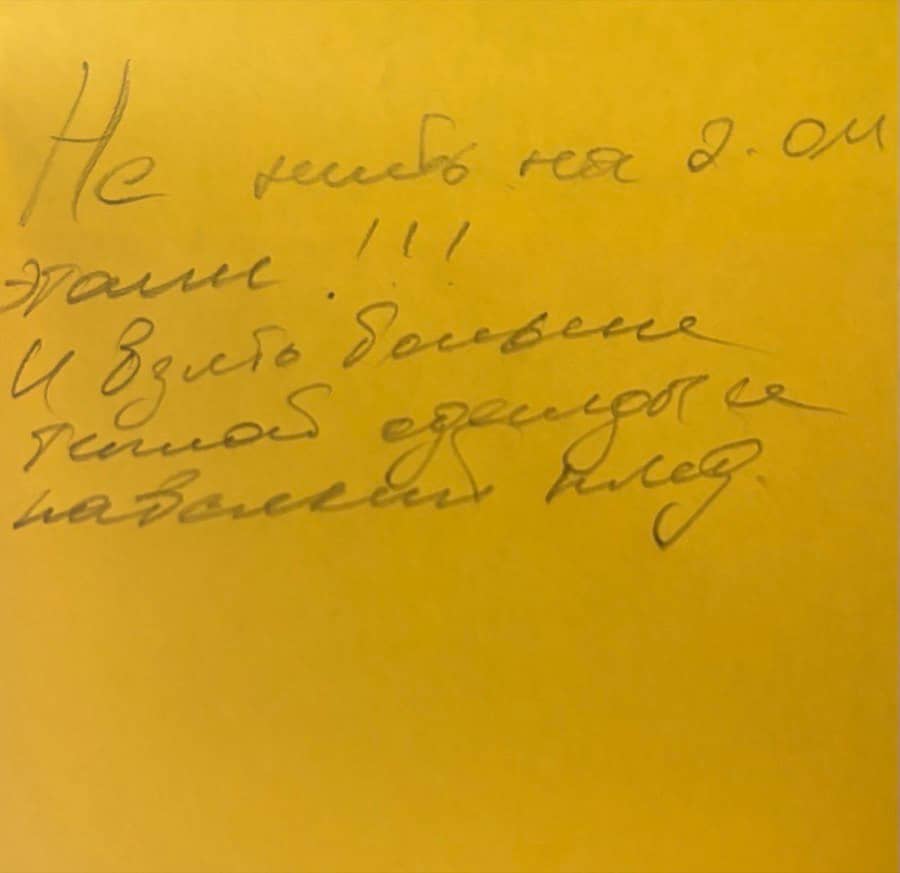 Не жить на 2-ом
этаже !!!
И взять больше
теплой одежды и
плед.